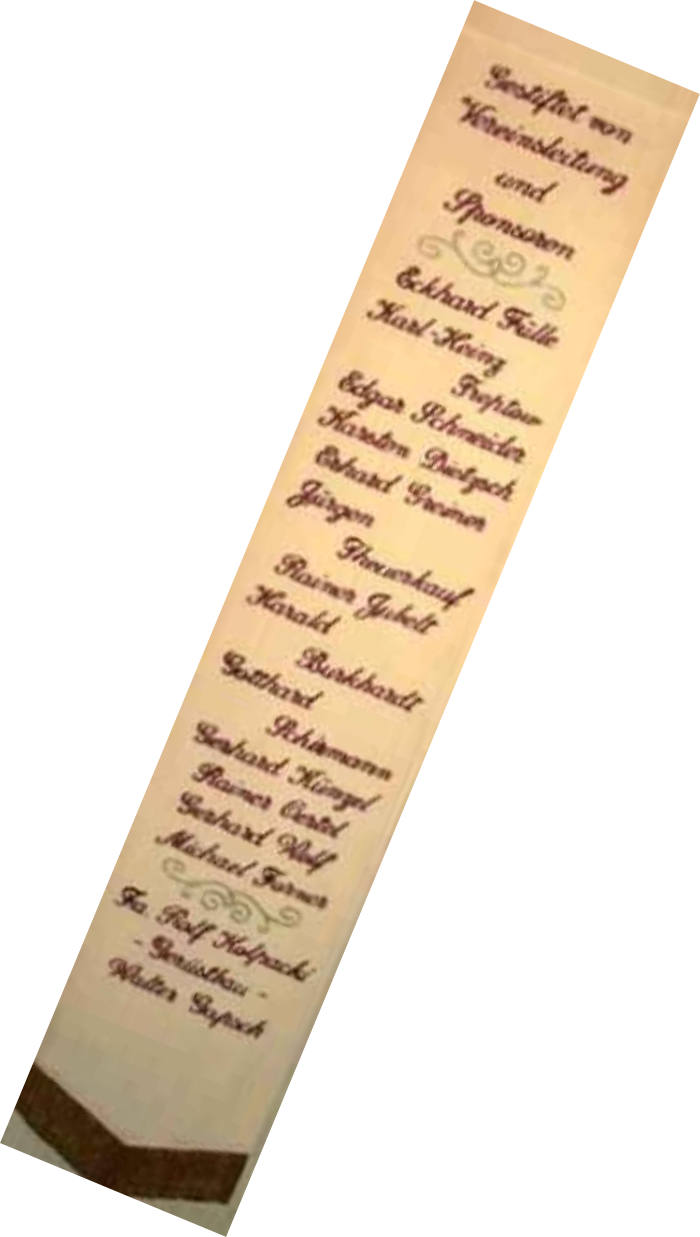 Gestiftet von
Vereinsleitung
und
Sponsoren
Eckhard Fülle
Karl-Heinz
Treptow
Edgar Schneider
Karsten Dietzsch
Erhard Greiner
Jürgen
Theuerkauf
Rainer Jubelt
Harald
Burkhardt
Gotthard
Schirmann
Gerhard Künzel
Rainer Oertel
Gerhard Wolf
Michael Forner
Fa. Rolf Kolpacki
- Gerüstbau -
Walter